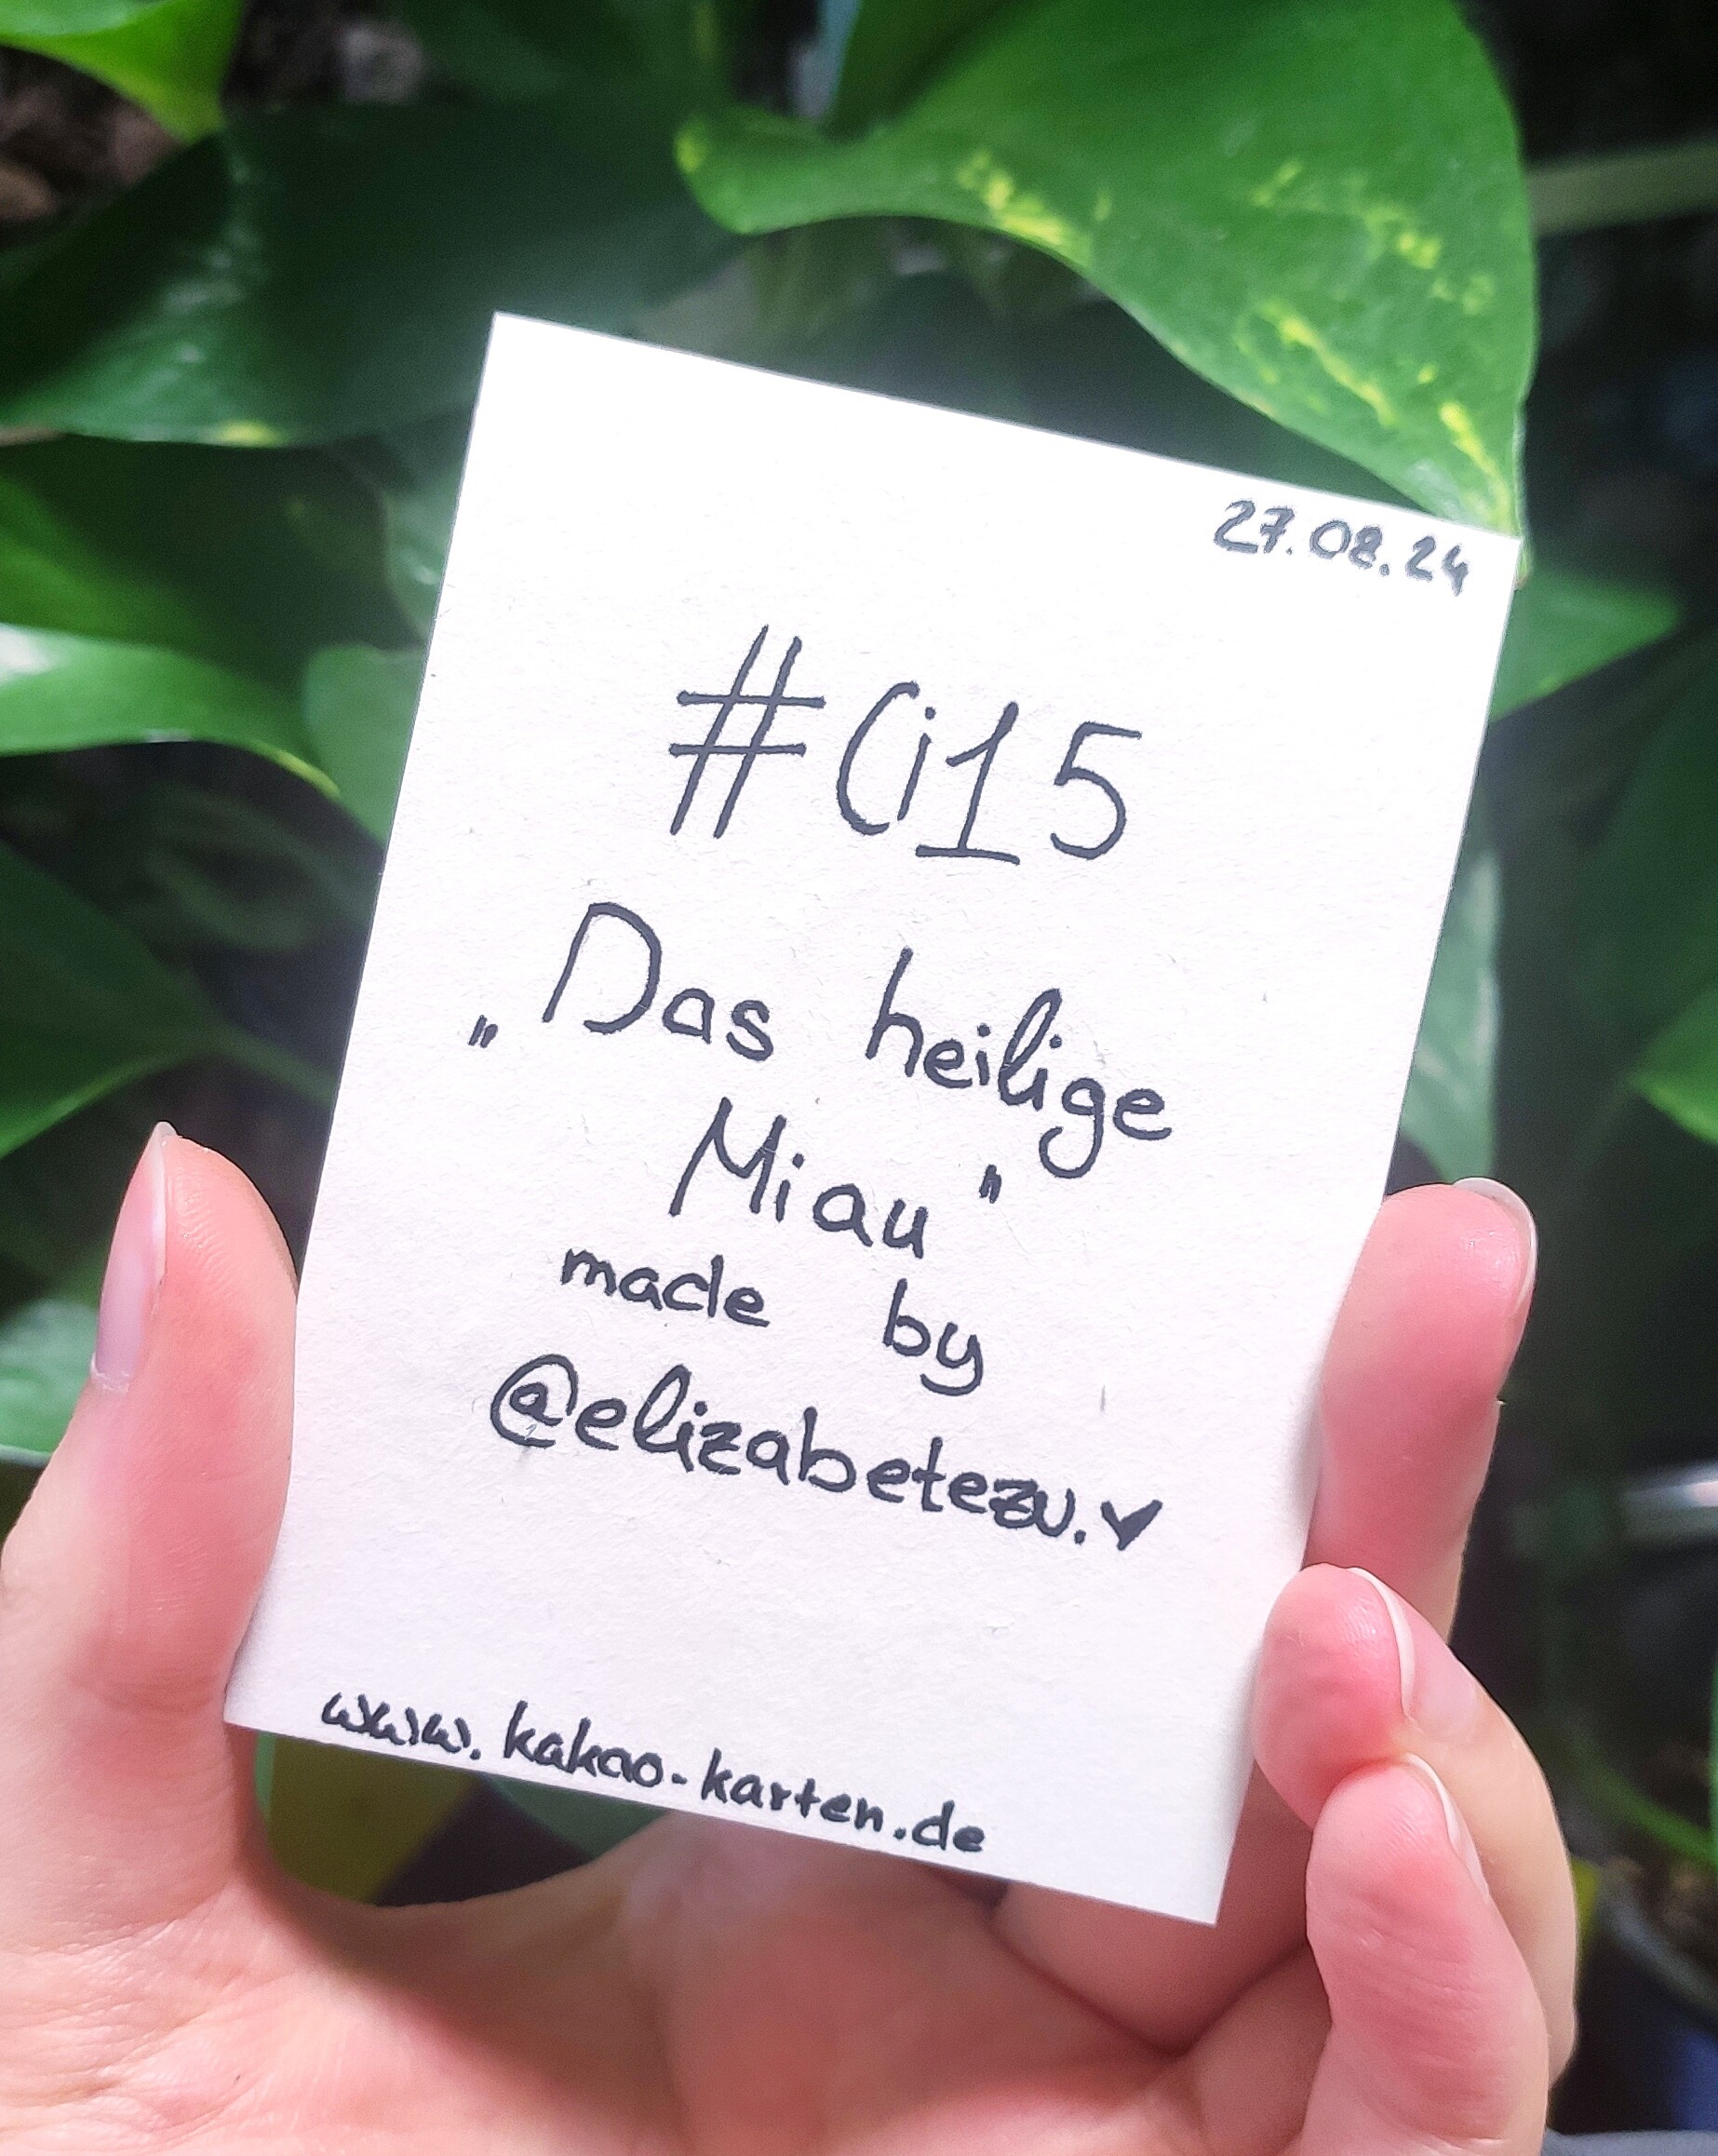 27.08.24
#Ci15
„Das heilige
Miau"
made by
@elizabetezu.♥
www.kakao-karten.de